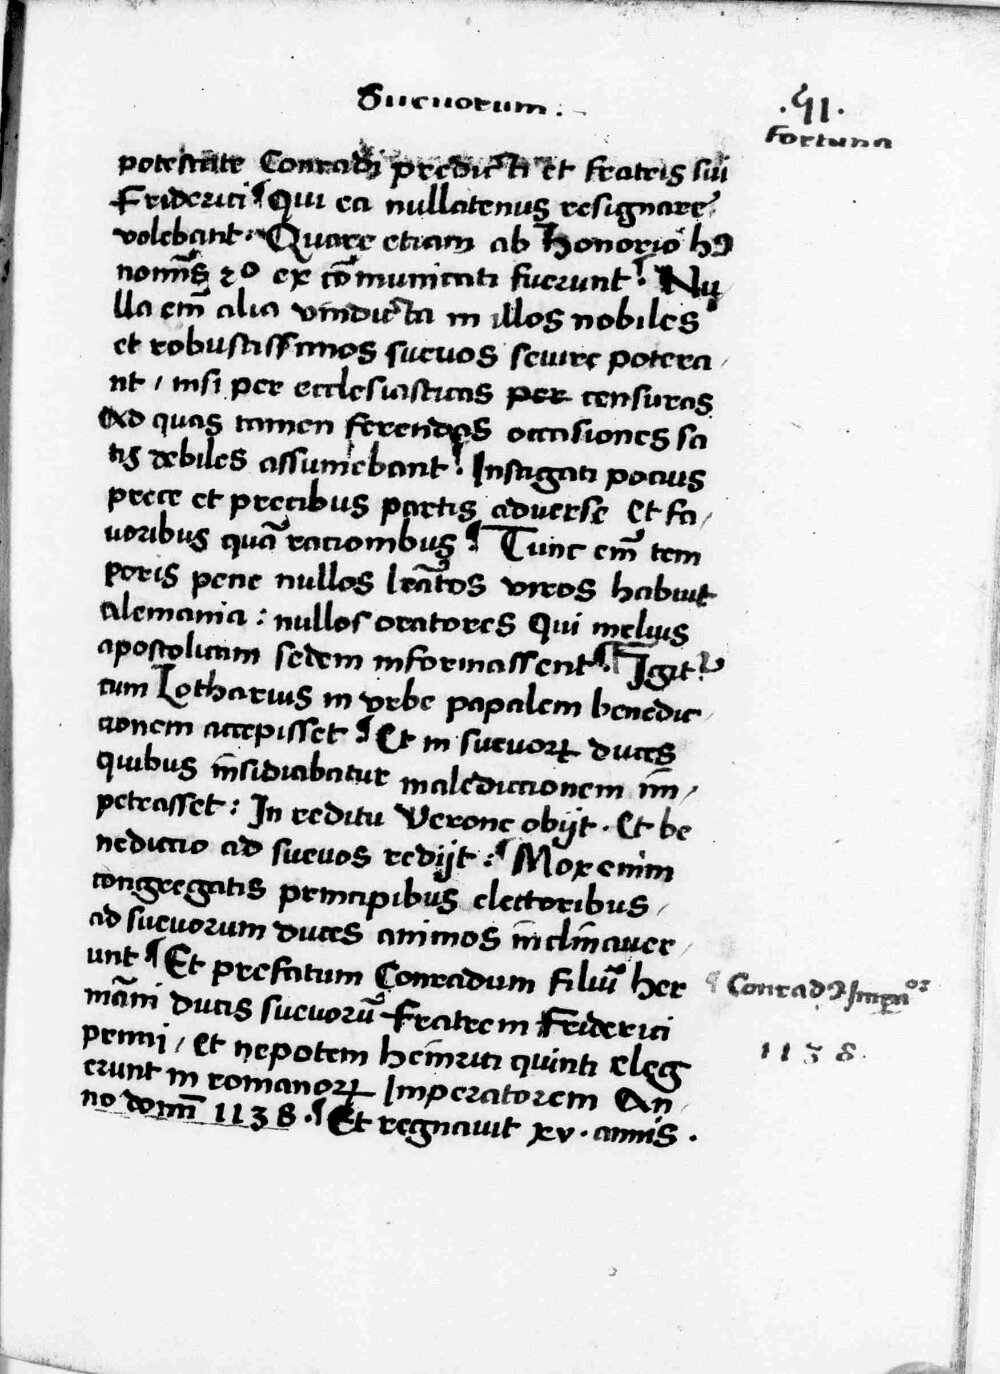 Sueuorum :-
.51.
Fortuna
potestate Conradi predicti et fratris sui
Friderici ¶ Qui ea nullatenus resignare
volebant. Quare etiam ab Honorio hꝰ
nomīs 2º ex cōmunicati fuerunt ¶ Nu
lla em̄ alia vindicta in illos nobiles
et robustissimos sueuos seuire potera
nt / nisi per ecclesiasticas per censuras
Ad quas tamen ferendas occasiones sa
tis debiles assumebant ¶ Instigati pocius
prece et precibus partis aduerse Et fa/
uoribus quā racionibus ¶ Tunc em̄ tem
poris pene nullos lrātos viros habuit
alemania : nullos oratores Qui melius
apostolicam sedem informassent ¶ Igit᷑
cum Lotharius in vrbe papalem benedic/
cionem accepisset ¶ Et in sueuoꝝ duces
quibus insidiabatur malediccionem im/
petrasset : In reditu Verone obijt . Et be
nediccio ad sueuos redijt : ¶ Mox enim
congregatis principibus electoribus /
ad sueuorum duces animos inclinauer/
unt ¶ Et prefatum Conradum filiū her
māni ducis sueuorū Fratrem Friderici
primi / et nepotem heinrici quinti eleg
erunt in romanoꝝ Imperatorem An/
no domī 1138 . ¶ Et regnauit xv . annis .
¶ Conradꝰ
1138.